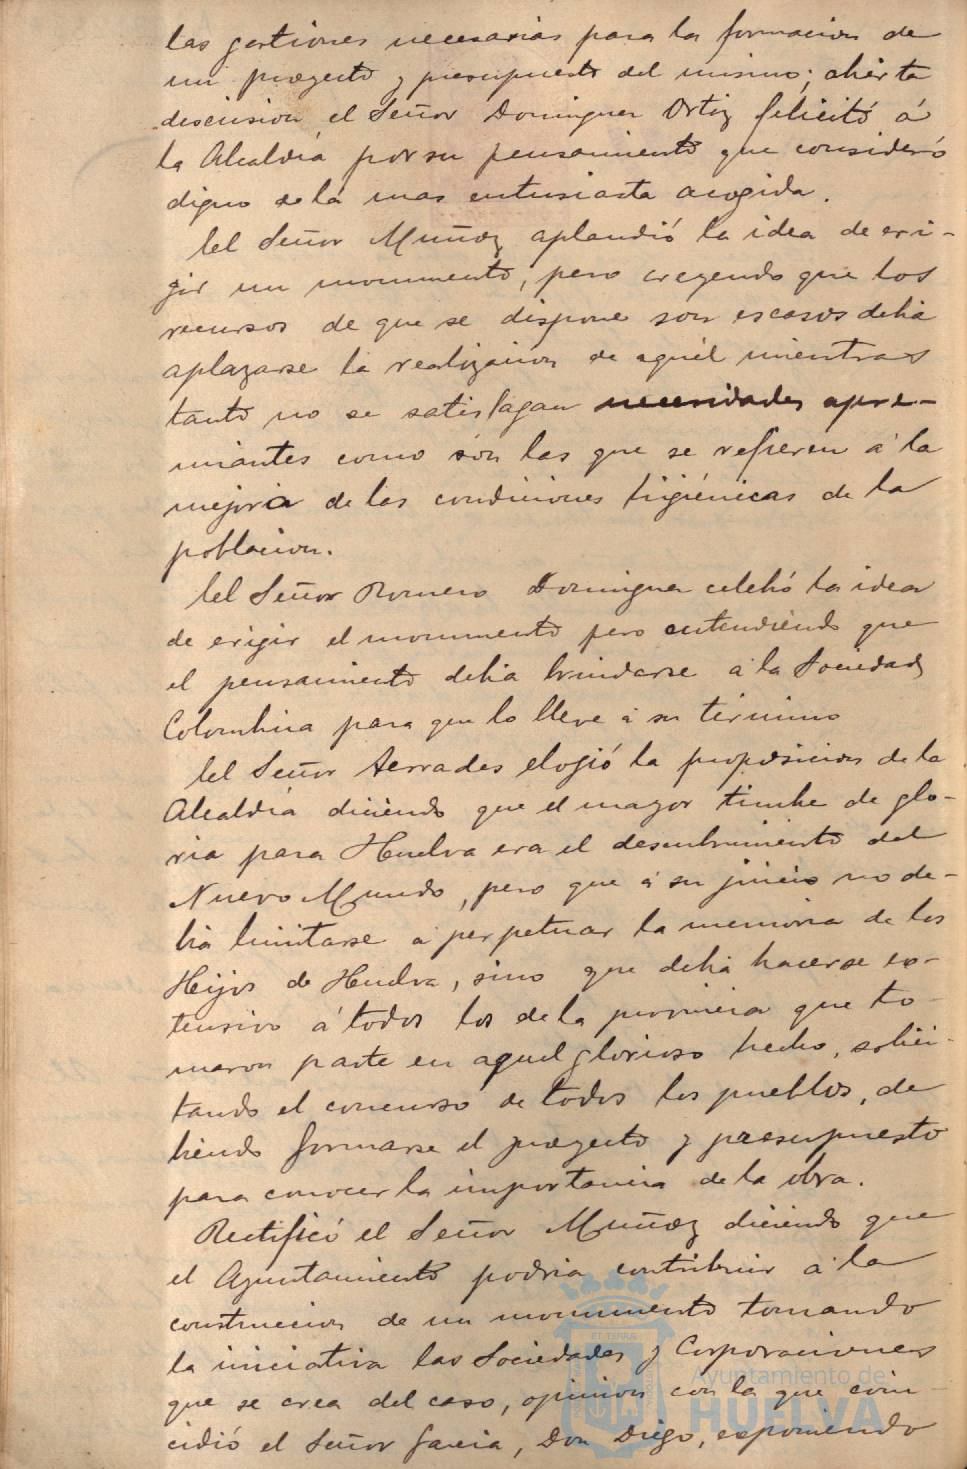 las gestiones necesarias para la formacion de
un proyecto y presupuesto del mismo; abierta
discusion, el Señor Dominguez Ortiz felicitó á
la Alcaldia por su pensamiento que consideró
digno de la mas entusiasta acogida.
El Señor Muñoz aplaudió la idea de eri-
gir un monumento, pero creyendo que los
recursos de que se dispone son escasos debia
aplazarse la realizacion de aquél mientras
tanto no se satisfagan necesidades apre-
miantes como són las que se refieren á la
mejoria de las condiciones higiénicas de la
poblacion.
El Señor Romero Dominguez celebó la idea
de erigir el monumento pero entendiendo que
el pensamiento debia brindarse á la Sociedad
Colombina para que lo lleve á su término
El Señor Terrades elogió la proposicion de la
Alcaldia diciendo que el mayor timbre de glo-
ria para Huelva era el descubrimiento del
Nuevo Mundo, pero que á su juicio no de-
bia limitarse á perpetuar la memoria de los
Hijos de Huelva, sino que debia hacerse ex-
tensivo á todos los de la provincia que to-
maron parte en aquel glorioso hecho, solici-
tando el concurso de todos los pueblos, de
biendo formarse el proyecto y presupuesto
para conocer la importancia de la obra.
Rectificó el Señor Muñoz diciendo que
el Ayuntamiento podria contribuir á la
construccion de un monumento tomando
la iniciativa las Sociedades y Corporaciones
que se crea del caso, opinion con la que coin-
cidió el Señor Garcia, Don Diego, exponiendo
Ayuntamiento de
HUELVA